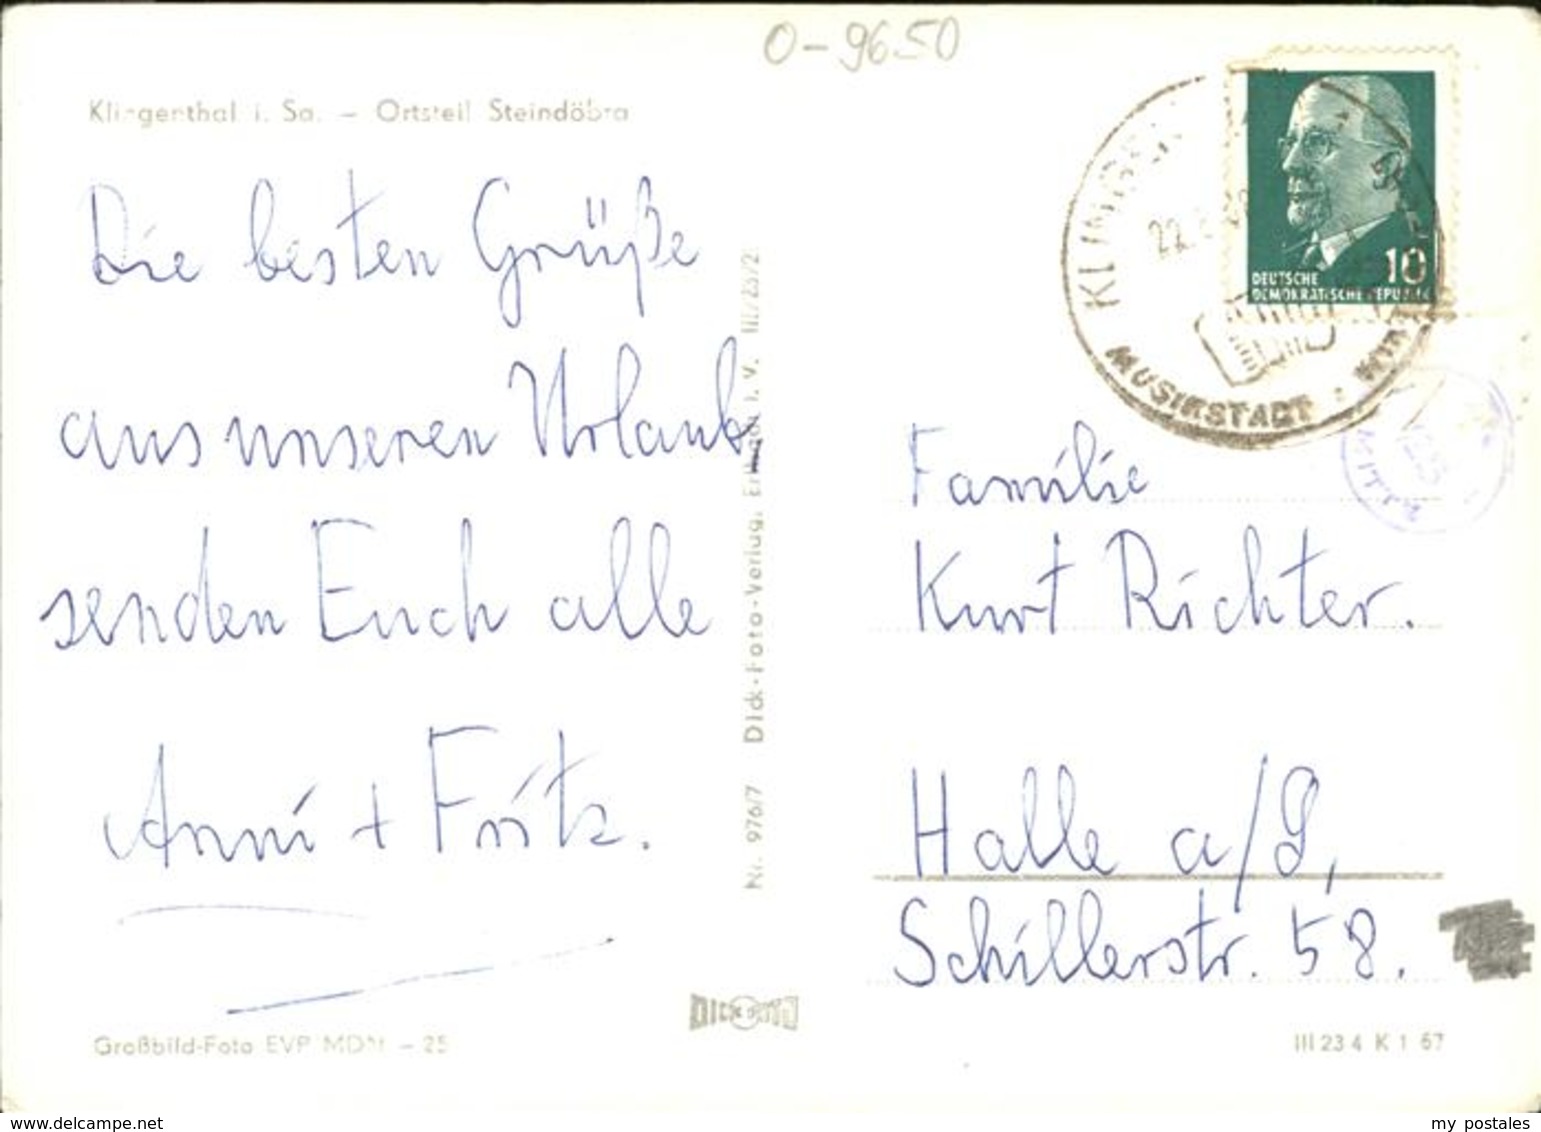 O-9650
Klingenthal i. Sa. – Ortsteil Steindöbra
Die besten Grüße
aus unseren Urlaub
senden Euch alle
Anni + Fritz.
Großbild-Foto EVP MDN –.25
Nr. 976/7 Dick-Foto-Verlag, Erlbach i. V. III/23/2
DICK FOTO
DEUTSCHE
DEMOKRATISCHE REPUBLIK
10
MUSIKSTADT
MITTE
Familie
Kurt Richter.
Halle a/S,
Schillerstr. 58.
III 23 4 K 1 67
www.delcampe.net
my postales